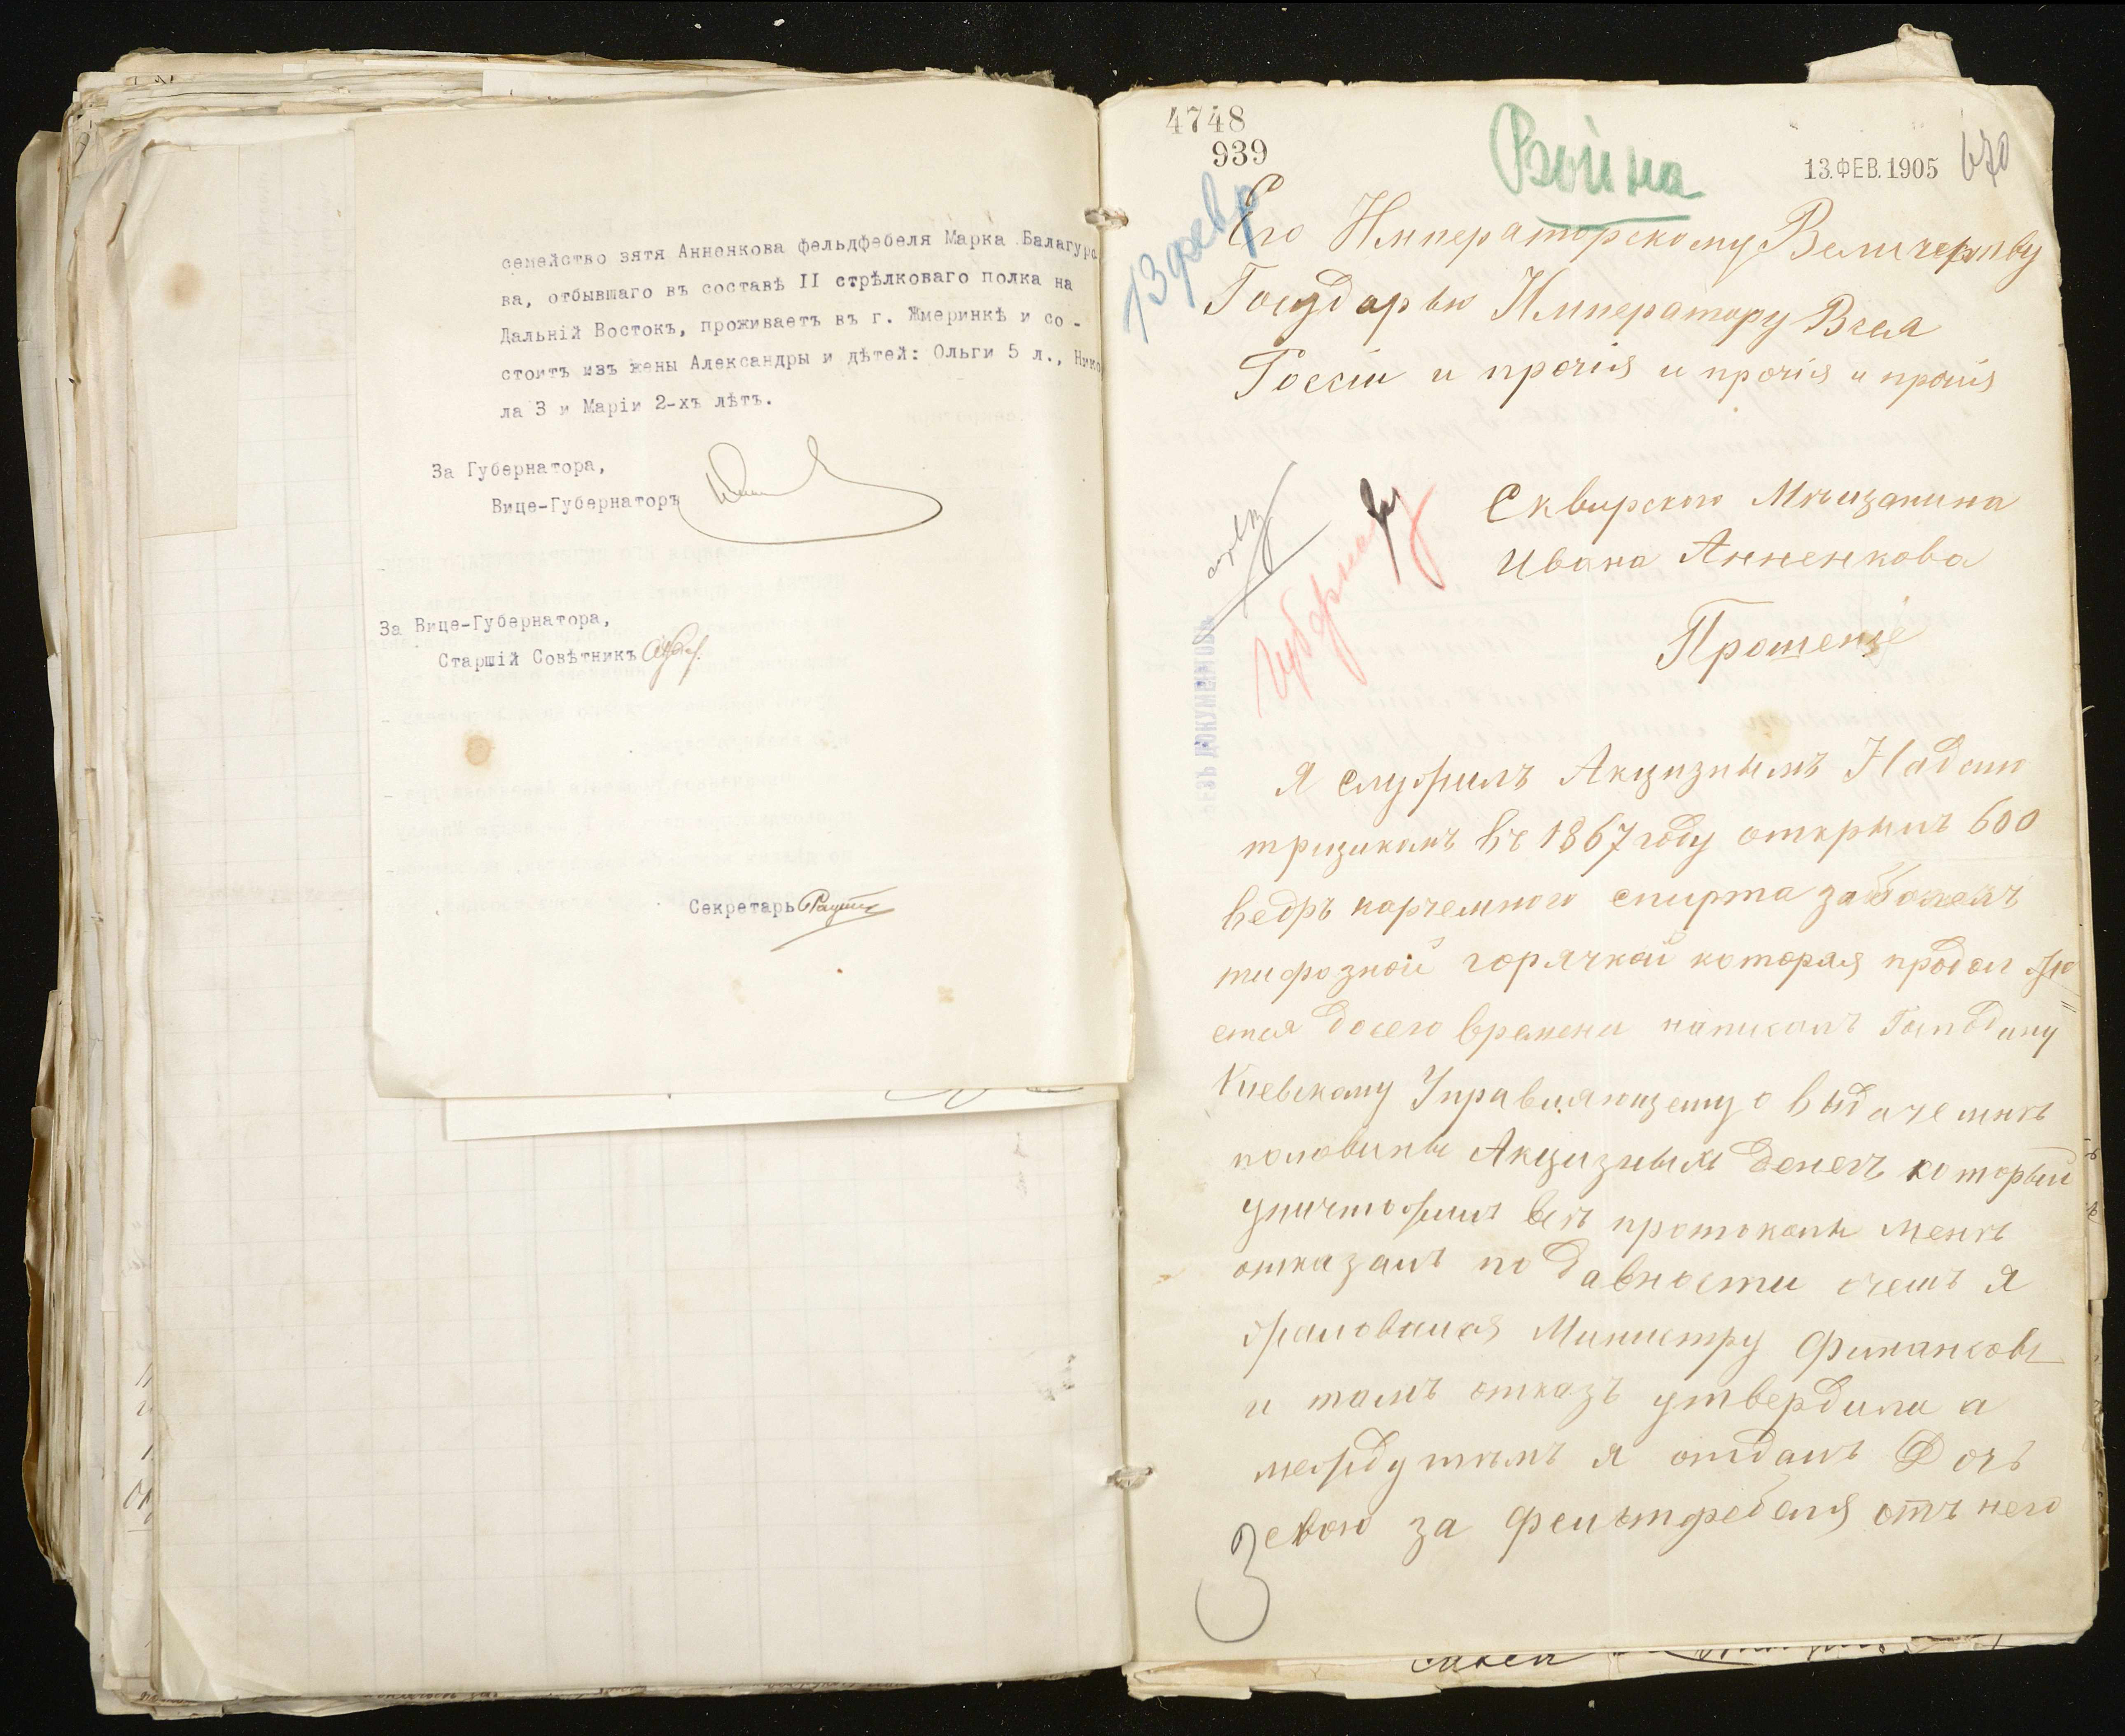 семейство зятя Анненкова фельдфебеля Марка Балагура
ва, отбывшаго въ составѣ II стрѣлковаго полка на
Дальній Востокъ, проживаетъ въ г. Жмеринкѣ и со-
стоитъ изъ жены Александры и дѣтей: Ольги 5 л., Нико
ла 3 и Маріи 2-хъ лѣтъ.
За Губернатора,
Вице-Губернаторъ
За Вице-Губернатора,
Старшій Совѣтникъ
Секретарь
4748
939
Война
13.ФЕВ.1905
670
13 февр
Его Императорскому Величеству
Государю Императору Всея
Россіи и прочія и прочія и прочія
Сквирского Мѣщанина
Ивана Анненкова
Прошеніе
БЕЗЪ ДОКУМЕНТОВЪ
Я служилъ Акцизнымъ Надсмо
трщикомъ въ 1867 году открылъ 600
ведръ корчемного спирта заболелъ
тифозной горячкой которая продолжа
ется досего времени написалъ Господину
Киевскому Управляющему о выдаче мнѣ
половины Акцизныхъ денегъ который
уничтожилъ всѣ протоколы менѣ
отказалъ по давности очемъ я
жаловался Министру Финансовъ
и тамъ отказъ утвердили а
междутѣмъ я отдалъ Дочь
свою за фельтфебеля отъ него